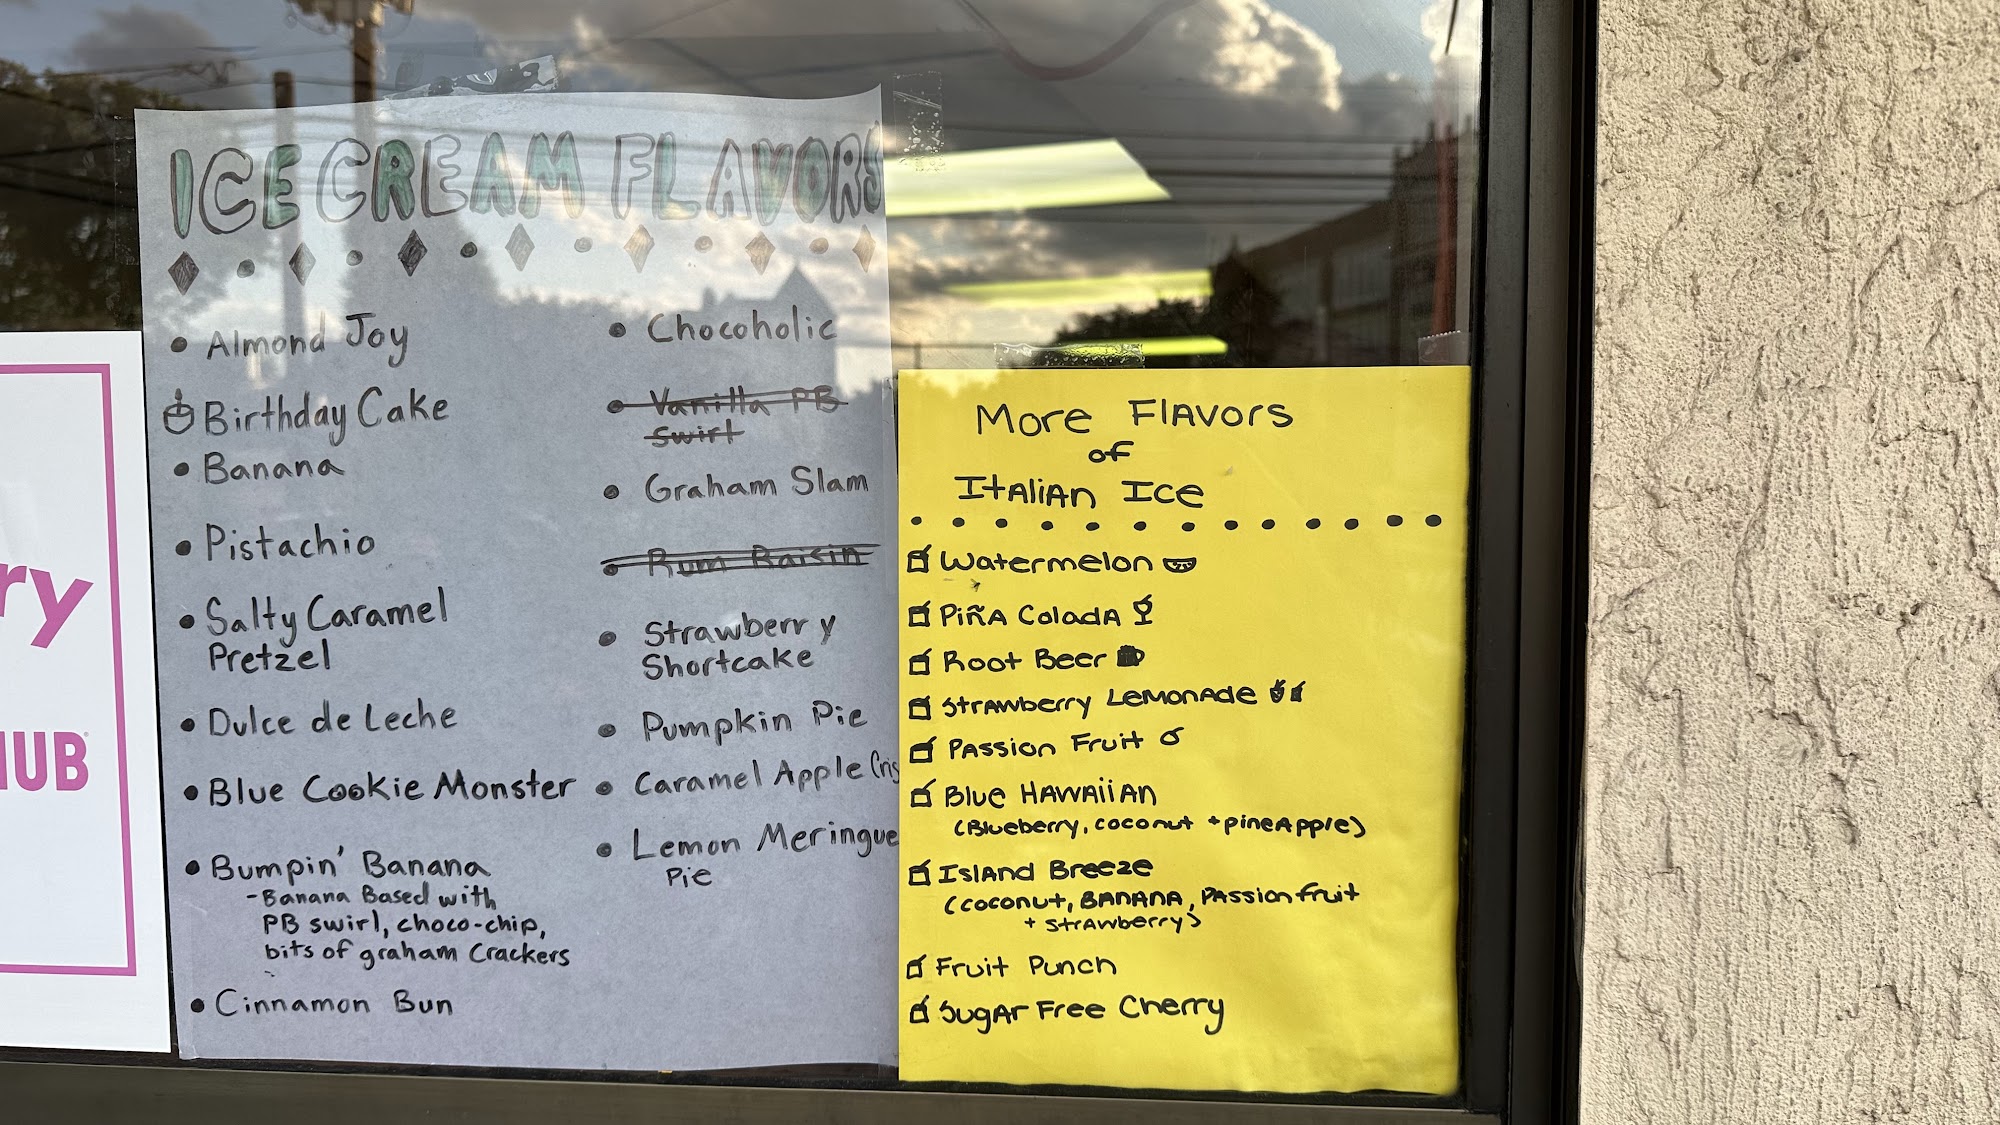 ICE CREAM FLAVORS
Almond Joy
Birthday Cake
Banana
Pistachio
Salty Caramel
Pretzel
Dulce de Leche
Blue Cookie Monster
Bumpin' Banana
- Banana Based with
PB swirl, choco-chip,
bits of graham Crackers
Cinnamon Bun
Chocoholic
Vanilla PB
swirl
Graham Slam
Rum Raisin
Strawberry
Shortcake
Pumpkin Pie
Caramel Apple Cris
Lemon Meringue
Pie
More Flavors
of
Italian Ice
Watermelon
Piña Colada
Root Beer
Strawberry Lemonade
Passion Fruit
Blue Hawaiian
(Blueberry, coconut + pineapple)
Island Breeze
(coconut, Banana, Passion fruit
+ strawberry)
Fruit Punch
Sugar Free Cherry
ry
HUB